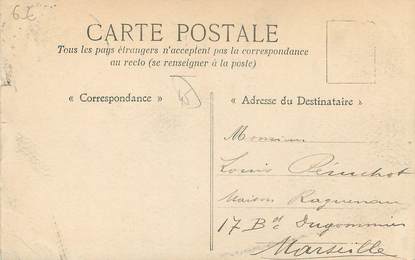 6 €
CARTE POSTALE
Tous les pays étrangers n'acceptent pas la correspondance
au recto (se renseigner à la poste)
« Correspondance »
« Adresse du Destinataire »
Monsieur
Louis Pénuchot
Maison Raquenau
17 Bd Dugommier
Marseille